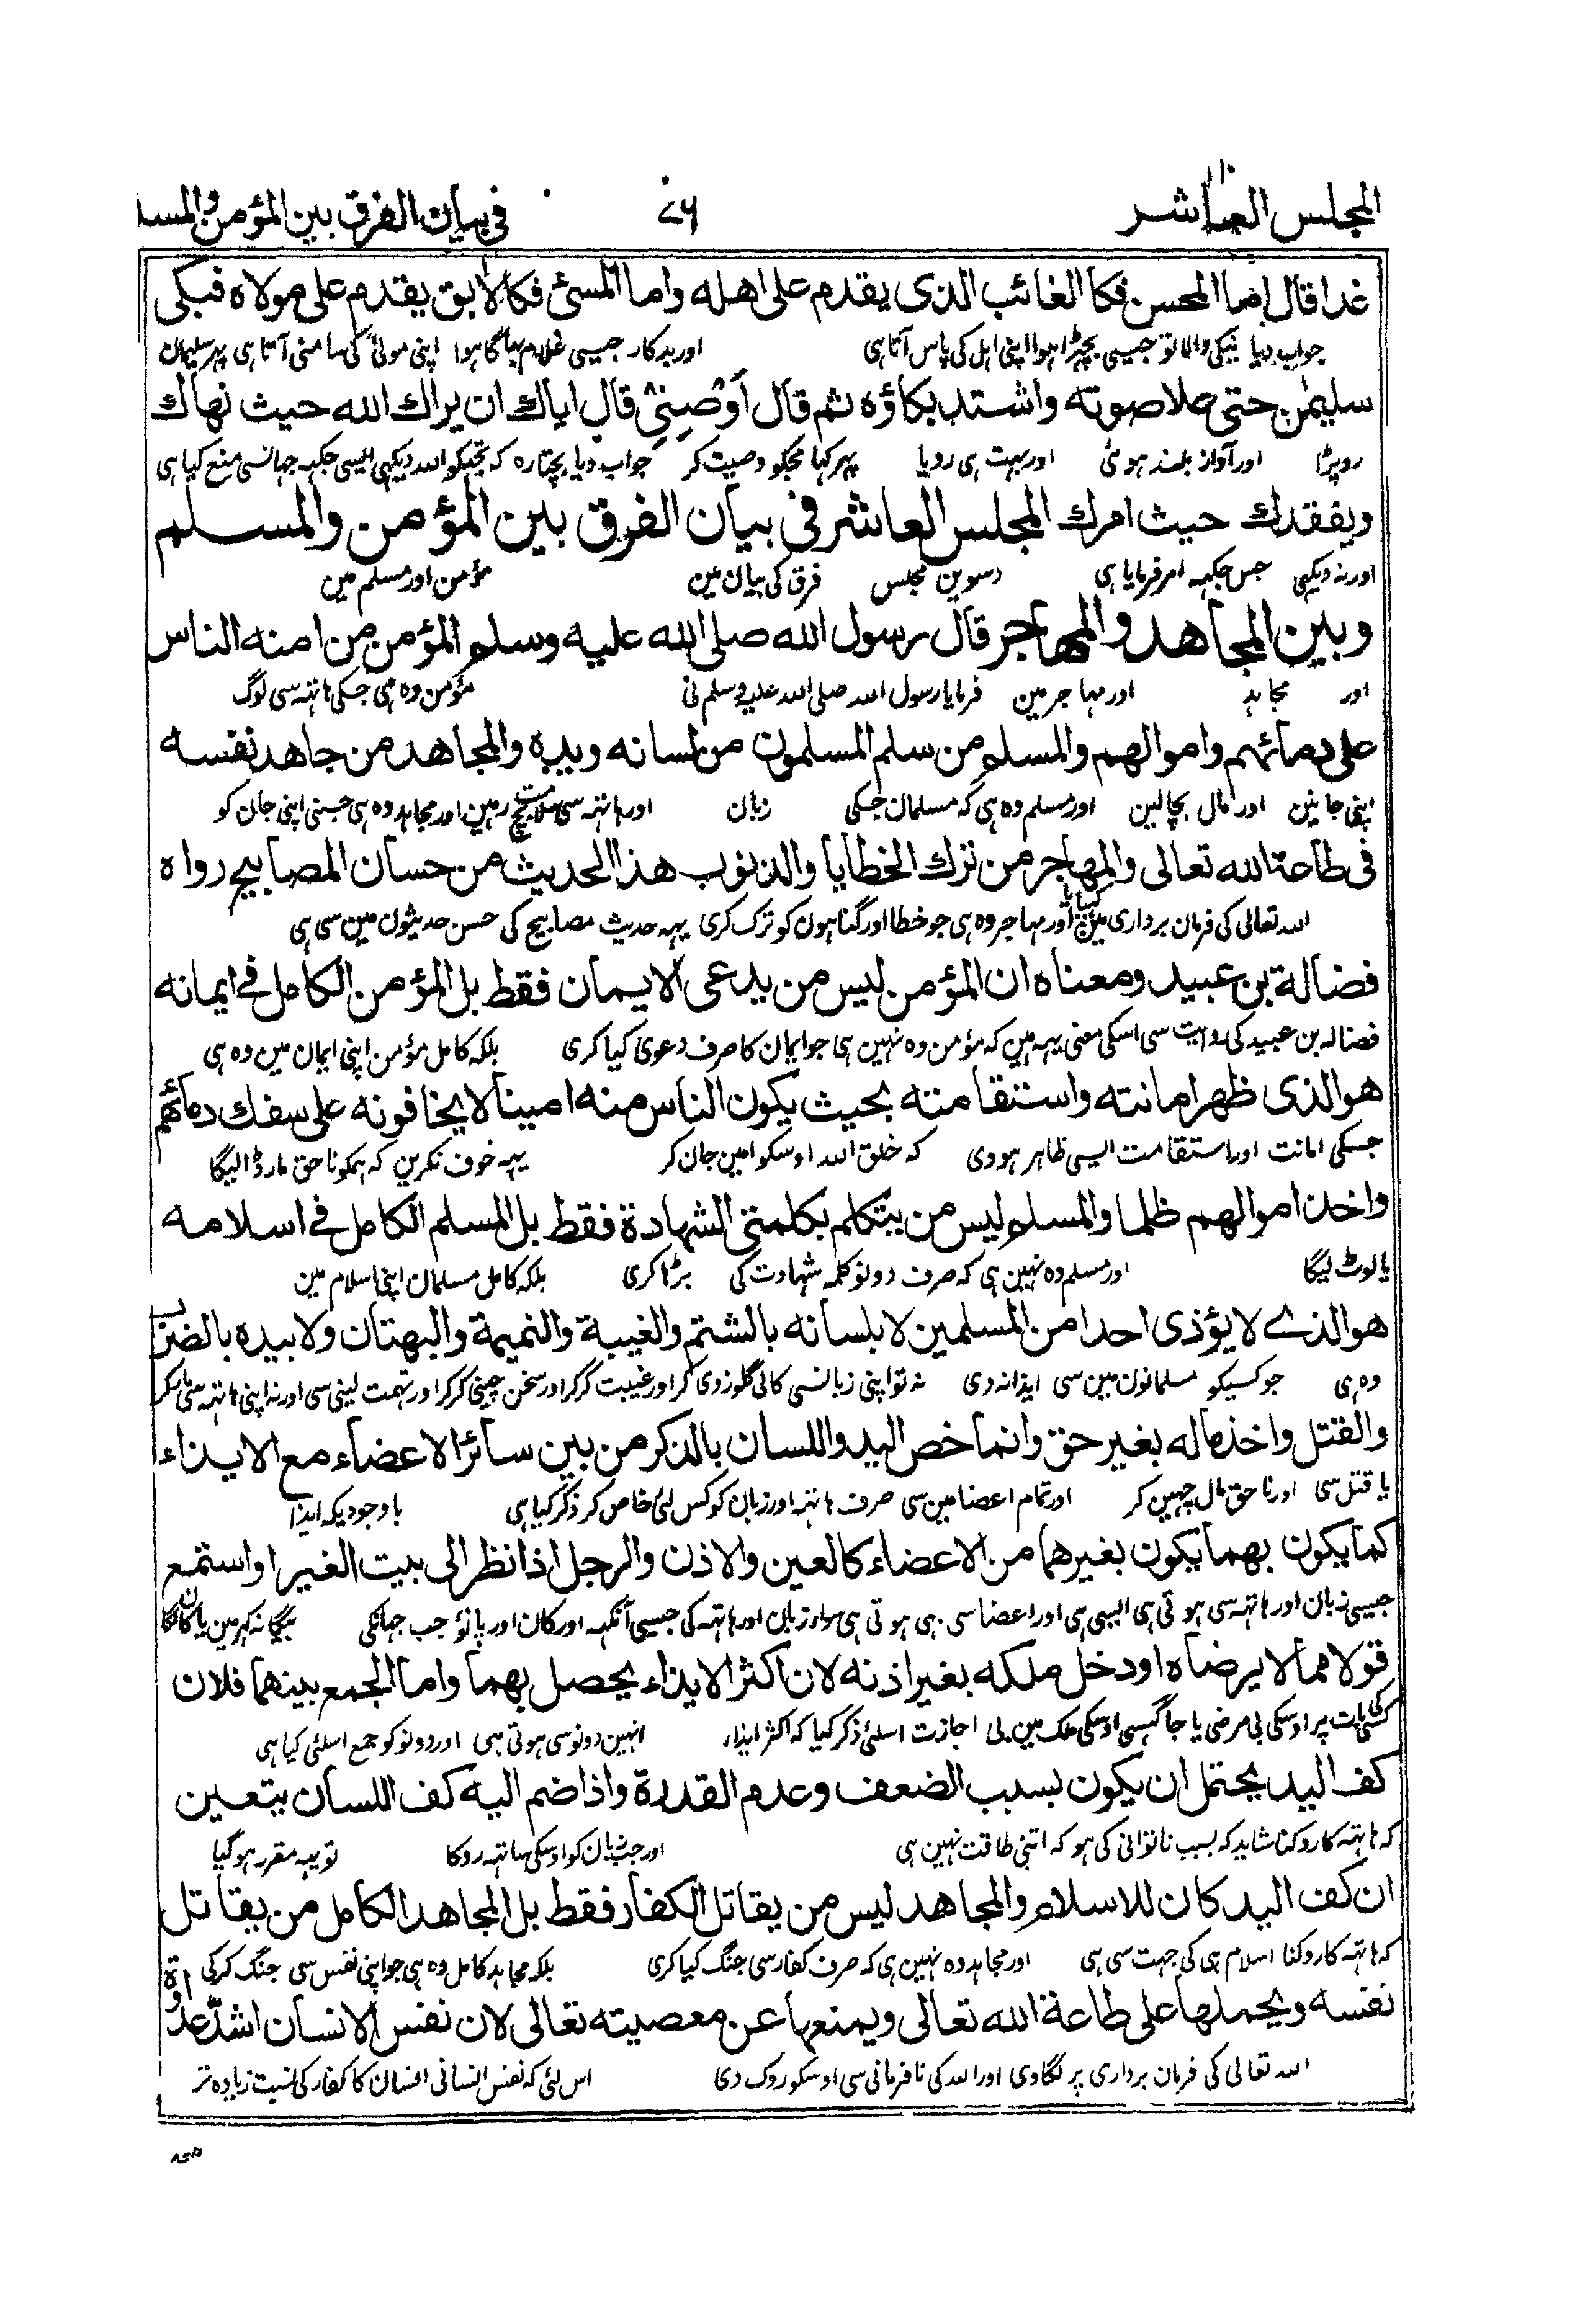 المجلس العاشر
٧٦
فی بیان الفرق بین المؤمن والمسلم
غدا قال اما المحسن فکا الغائب الذی یقدم علی اهله واما المسئ فکالابق یقدم علی مولاه فبکی
جواب دیا نیکی والا تو جیسی بچھڑا ہوا اپنی اہل کی پاس آتا ہی اور بدکار جیسی غلام بھاگا ہوا اپنی مولیٰ کی سامنی آتا ہی پہر سلیمان
سلیمٰن حتی علا صوته واشتد بکاؤه ثم قال أَوْصِنِیْ قال ایاك ان یراك الله حیث نهاك
روپڑا اور آواز بلند ہوئی اور بہت ہی رویا پہر کہا مجکو وصیت کر جواب دیا بچتا رہ کہ تجہکو اللہ دیکہی ایسی جگہہ جہانسی منع کیا ہی
ویفقدك حیث امرك المجلس العاشر فی بیان الفرق بین المؤمن والمسلم
اور نہ دیکہی جس جگہہ امر فرمایا ہی دسوین مجلس فرق کی بیان مین مؤمن اور مسلم مین
وبین المجاهد والمهاجر قال رسول الله صلی الله علیه وسلم المؤمن من امنه الناس
اور مجاہد اور مہاجر مین فرمایا رسول اللہ صلی اللہ علیہ وسلم نی مؤمن وہ ہی جسکی ہاتہہ سی لوگ
علی دمائهم واموالهم والمسلم من سلم المسلمون من لسانه ویده والمجاهد من جاهد نفسه
اپنی جانین اور مال بچالین اور مسلم وہ ہی کہ مسلمان جسکی زبان اور ہاتہہ سی بچی رہین اور مجاہد وہ ہی جسنی اپنی جان کو
فی طاعة الله تعالی والمهاجر من ترك الخطایا والذنوب هذا الحدیث من حسان المصابیح رواه
اللہ تعالی کی فرمان برداری مین اور مہاجر وہ ہی جو خطا اور گناہون کو ترک کری یہہ حدیث مصابیح کی حسن حدیثون مین سی ہی
فضالة بن عبید ومعناه ان المؤمن لیس من یدعی الایمان فقط بل المؤمن الکامل فے ایمانه
فضالہ بن عبید کی روایت سی اسکی معنی یہہ مین کہ مؤمن وہ نہین ہی جو ایمان کا صرف دعوی کیا کری بلکہ کامل مؤمن اپنی ایمان مین وہ ہی
هو الذی ظهر امانته واستقامته بحیث یکون الناس منه امینا لا یخافونه علی سفك دمائهم
جسکی امانت اور استقامت ایسی ظاہر ہووی کہ خلق اللہ اوسکو امین جان کر یہہ خوف نکرین کہ ہمکو ناحق مار ڈالیگا
واخذ اموالهم ظلما والمسلم لیس من یتکلم بکلمتی الشهادة فقط بل المسلم الکامل فے اسلامه
یا لوٹ لیگا اور مسلم وہ نہین ہی کہ صرف دونو کلمہ شہادت کی پڑہا کری بلکہ کامل مسلمان اپنی اسلام مین
هو الذے لا یؤذی احدا من المسلمین لا بلسانه بالشتم والغیبة والنمیمة والبهتان ولا بیده بالضرب
وہ ہی جو کسیکو مسلمانون مین سی ایذا نہ دی نہ تو اپنی زبانسی گالی گلوز دی کر اور غیبت کر کر اور سخن چینی کر کر اور تہمت لینی سی اور نہ اپنی ہاتہہ سی مار کر
والقتل واخذ ماله بغیر حق وانما خص الید واللسان بالذکر من بین سائر الاعضاء مع الایذاء
یا قتل سی اور ناحق مال چہین کر اور تمام اعضا مین سی صرف ہاتہہ اور زبان کو کس لئی خاص کر ذکر کیا ہی باوجودیکہ ایذا
کما یکون بهما یکون بغیرهما من الاعضاء کالعین والاذن والرجل اذا نظر الی بیت الغیر او استمع
جیسی زبان اور ہاتہہ سی ہوتی ہی ایسی ہی اور اعضا سی بہی ہوتی ہی سواء زبان اور ہاتہہ کی جیسی آنکہہ اور کان اور پانو جب جہانکی بیگانہ گہر مین یا کان لگا
قولا مما لا یرضاه او دخل ملکه بغیر اذنه لان اکثر الایذاء یحصل بهما واما الجمع بینهما فلان
کسی بات پر اوسکی بی مرضی یا جا گہسی اوسکی ملک مین بی اجازت اسلئی ذکر کیا کہ اکثر ایذاء انہین دونو سی ہوتی ہی اور دونو کو جمع اسلئی کیا ہی
کف الید یحتمل ان یکون بسبب الضعف وعدم القدرة واذا ضم الیه کف اللسان یتعین
کہ ہاتہہ کا روکنا شاید کہ بسبب ناتوانی کی ہو کہ اتنی طاقت نہین ہی اور جب زبان کو اوسکی ساتہہ روکا تو یہہ مقرر ہوگیا
ان کف الید کان للاسلام والمجاهد لیس من یقاتل الکفار فقط بل المجاهد الکامل من یقاتل
کہ ہاتہہ کا روکنا اسلام ہی کی جہت سی ہی اور مجاہد وہ نہین ہی کہ صرف کفار سی جنگ کیا کری بلکہ مجاہد کامل وہ ہی جو اپنی نفس سی جنگ کر کی
نفسه ویحملها علی طاعة الله تعالی ویمنعها عن معصیته تعالی لان نفس الانسان اشدّ عداوة
اللہ تعالی کی فرمان برداری پر لگاوی اور اللہ کی نافرمانی سی اوسکو روک دی اس لئی کہ نفس انسانی انسان کا کفار کی نسبت زیادہ تر